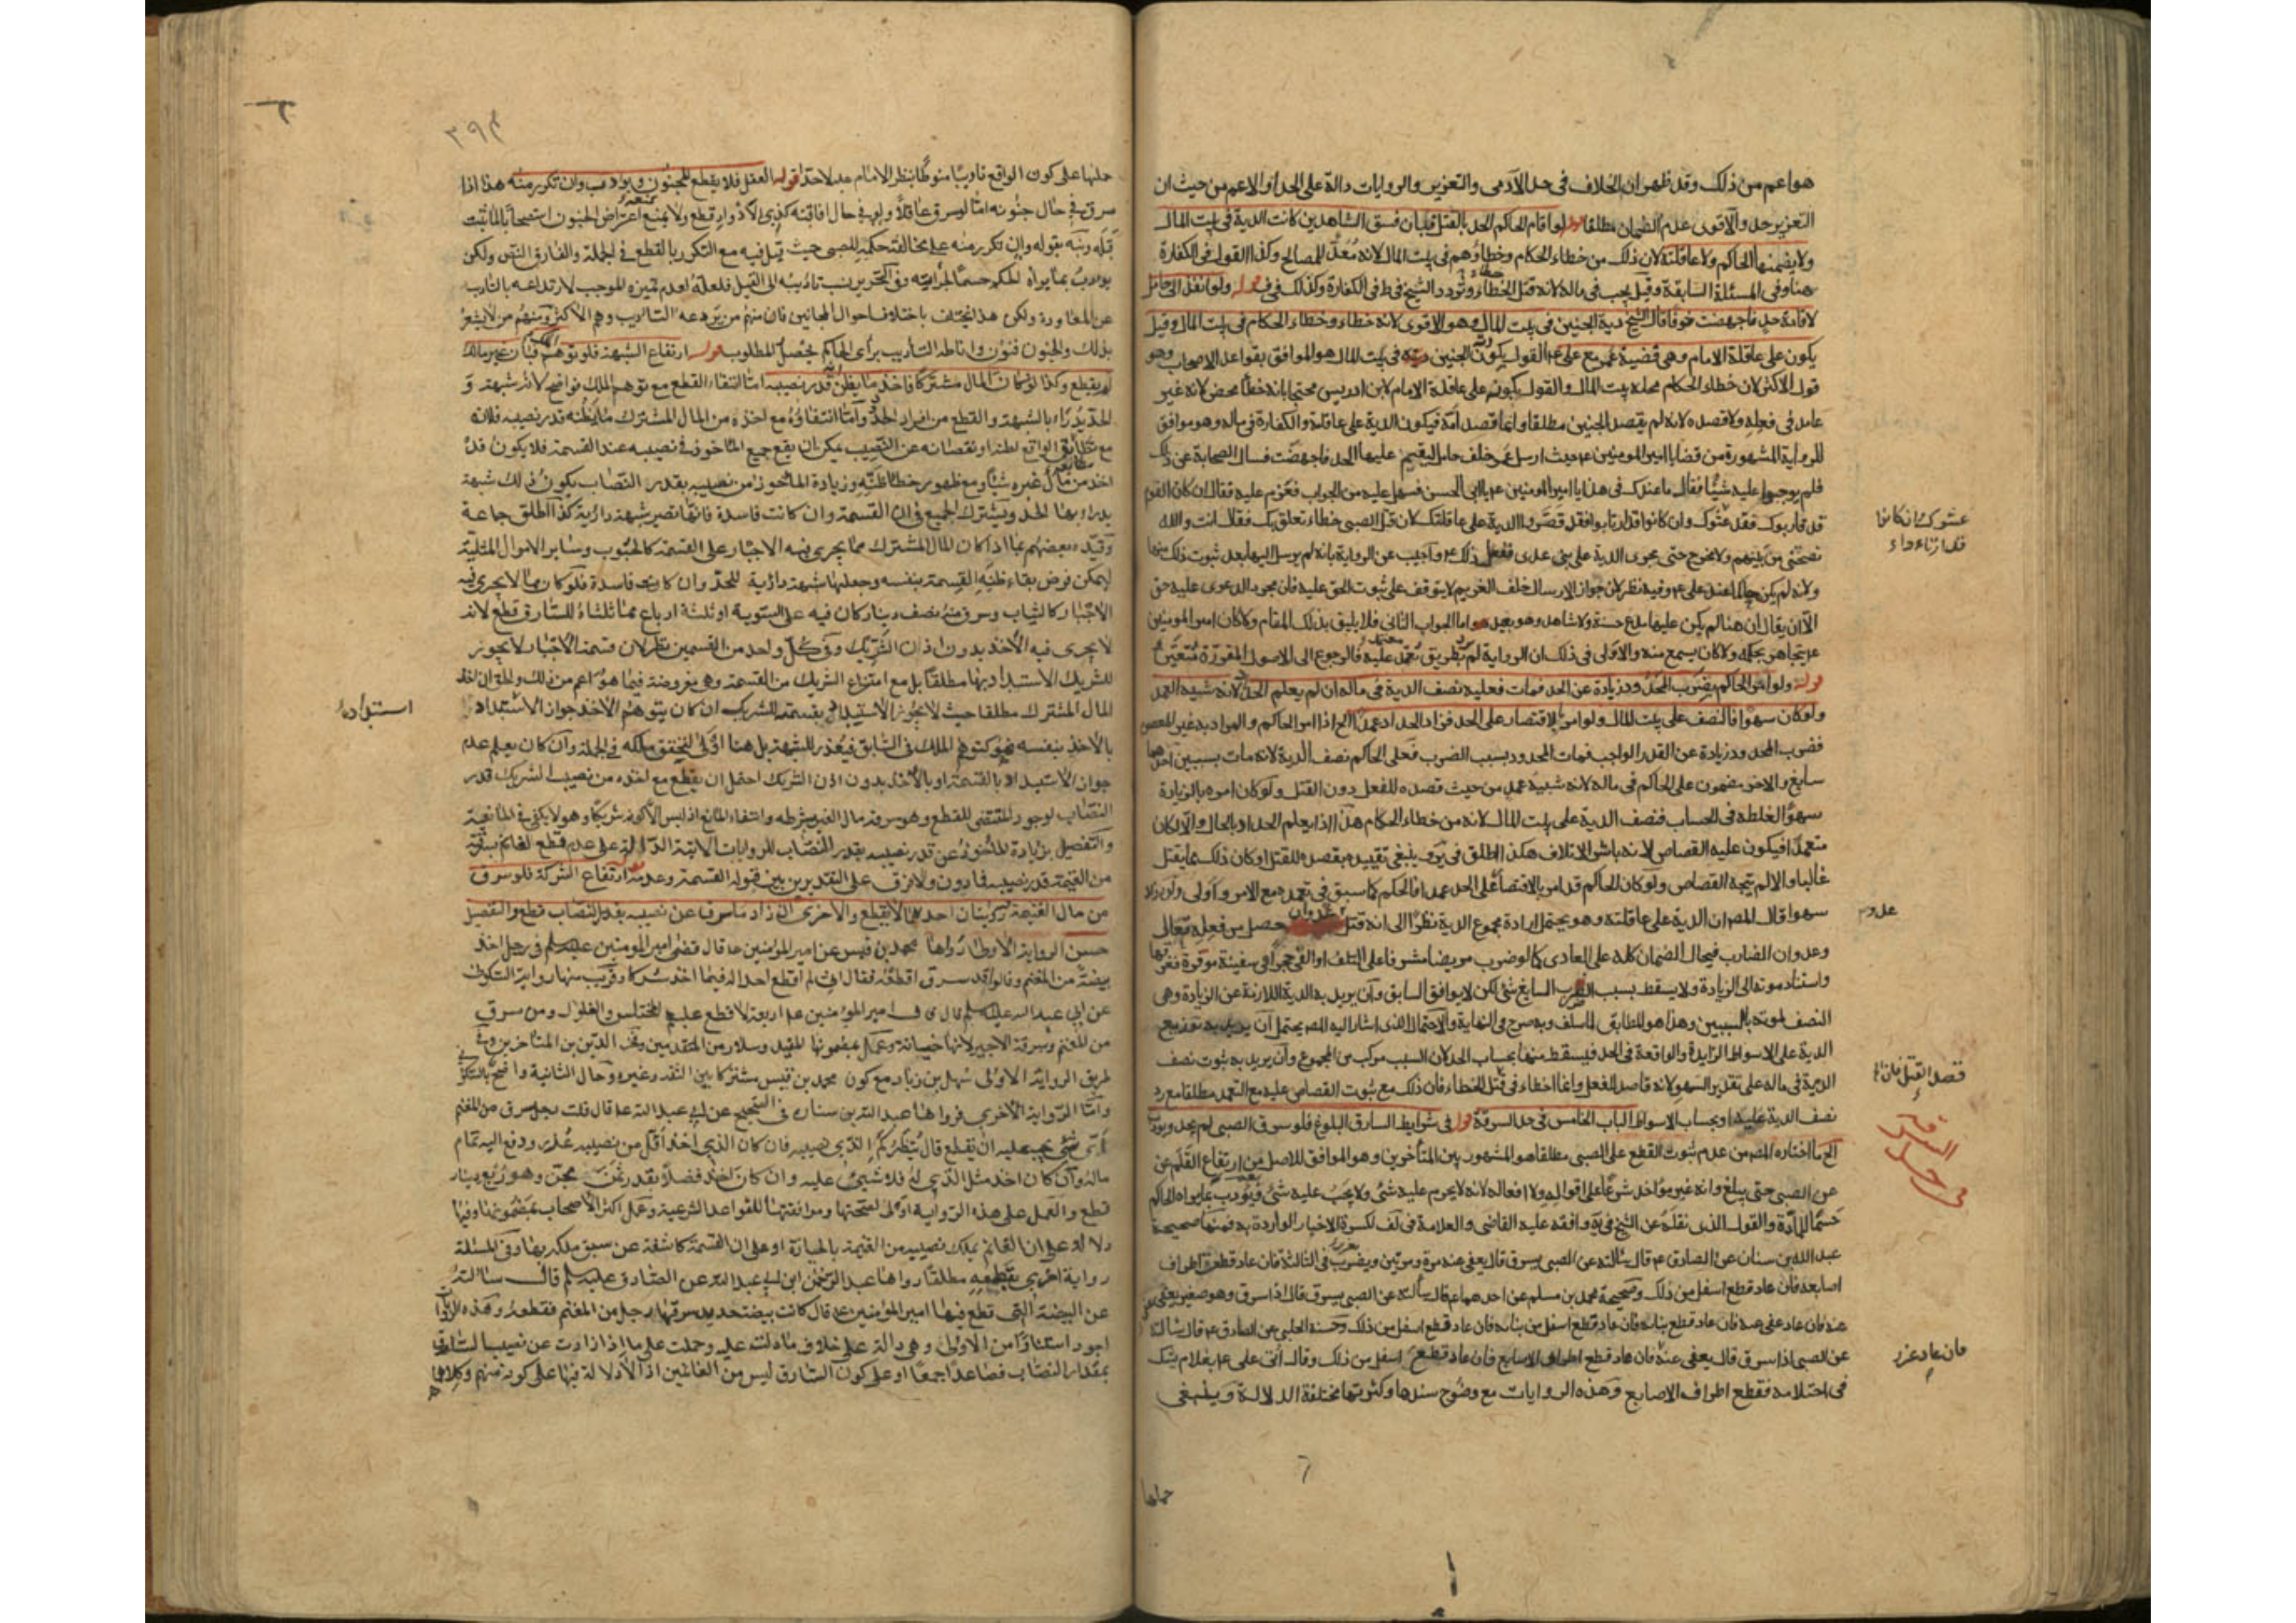 هو اعم من ذلك وقد ظهر ان الخلاف فى حد الآدمى والتعزير والروايات دالة على الحد او الاعم من حيث ان
التعزير حد والاقوى عدم الضمان مطلقا قوله لو اقام الحاكم الحد بالقتل فبان فسق الشاهدين كانت الدية فى بيت المال
ولا يضمنها الحاكم ولا عاقلته لان ذلك من خطاء الحكام وخطاؤهم فى بيت المال لانه مُعدّ للمصالح وكذا القول فى الكفارة
هنا وفى المسئلة السابقة وقيل يجب فى ماله لانه قتل الخطاء وتردد الشيخ فى ط فى الكفارة وكذلك فى قوله ولو انفذ الى حامل
لاقامة حد فاجهضت خوفا قال الشيخ دية الجنين فى بيت المال وهو الاقوى لانه خطاء وخطاء الحكام فى بيت المال وقيل
يكون على عاقلة الامام وهى قضية عمر مع على ع القول بكون دية الجنين فى بيت المال هو الموافق بقواعد الاصحاب وهو
قول الاكثر لان خطاء الحكام محله بيت المال والقول بكونه على عاقلة الامام لابن ادريس محتجا بانه خطأ محض لانه غير
عامد فى فعله ولا قصده لانه لم يقصد الجنين مطلقا وانما قصد امه فيكون الدية على عاقلته والكفارة فى ماله وهو موافق
للرواية المشهورة من قضايا امير المومنين ع حيث ارسل عمر خلف حامل ليقيم عليها الحد فاجهضت فسال الصحابة عن ذلك
فلم يوجبوا عليه شيئا فقال ما عندك فى هذا يا ابا الحسن فتنصل عليه من الجواب فعزم عليه فقال ان كان القوم
قد قاربوك فقد غشوك وان كانوا قد ارتاوا فقد قصروا الدية على عاقلتك لان قتل الصبى خطاء تعلق بك فقال انت والله
نصحتنى من بينهم ولا تخرج حتى يجرى الدية على بنى عدى ففعل ذلك ع واجيب عن الرواية بانه لم يرسل اليها بعد ثبوت ذلك منها
ولانه لم يكن حاكما عند على ع وفيه نظر لان جواز الارسال خلف الغريم لا يتوقف على ثبوت الحق عليه فان مجرد الدعوى عليه حق
الا ان يقال ان هنا لم يكن عليها مدع حسبة ولا شاهد وهو بعيد واما الجواب الثانى فلا يليق بذلك المقام ولا كان امير المومنين
ع يتجاهر بحكمه ولا كان يسمع منه والاولى فى ذلك ان الرواية لم ترد بطريق معتمد عليه فالرجوع الى الاصول المقررة متعين
قوله ولو امر الحاكم بضرب المحدود زيادة عن الحد فمات فعليه نصف الدية فى ماله ان لم يعلم الحداد لانه شبيه العمد
ولو كان سهوا فالنصف على بيت المال ولو امر بالاقتصار على الحد فزاد الحداد عمدا الخ اذا امر الحاكم والمراد به غير المعصوم
فضرب المحدود زيادة عن القدر الواجب فمات المحدود بسبب الضرب فعلى الحاكم نصف الدية لانه مات بسببين احدهما
سايغ والاخر مضمون على الحاكم فى ماله لانه شبيه عمد من حيث قصده للفعل دون القتل ولو كان امره بالزيادة
سهوا لغلطه فى الحساب فنصف الدية على بيت المال لانه من خطاء الحكام هذا اذا لم يعلم الحداد بالحال والا لكان
متعمدا فيكون عليه القصاص لانه باشر الاتلاف هكذا اطلق فى ير وينبغى تقييده بقصده للقتل او كان ذلك مما يقتل
غالبا والا لم يتجه القصاص ولو كان الحاكم قد امر بالاقتصار على الحد عمدا فالحكم كما سبق فى تعمده مع الامر واولى ولو زاد
سهوا قال المصر ان الدية على عاقلته وهو يحتمل ارادة مجموع الدية نظرا الى انه قتل عدوان حصل من فعله تعالى
وعدوان الضارب فيحال الضمان كله على العادى كما لو ضرب مريضا مشرفا على التلف او القى حجرا فى سفينة موقرة فغرقها
واستناد موته الى الزيادة ولا يسقط بسبب الضرب السايغ شئ لكن لا يوافق السابق وان يريد به الدية اللازمة عن الزيادة وهى
النصف لموته بالسببين وهذا هو المطابق لما سلف وبه صرح فى النهاية والاحتمال الذى اشار اليه المصر يحتمل ان يريد به توزيع
الدية على الاسواط الزايدة والواقعة فى الحد فيسقط منها بحساب الحد لان السبب مركب من المجموع وان يريد به ثبوت نصف
الدية فى ماله على تقدير السهو لانه قاصد للفعل وانما اخطاء فى قتل الخطاء فان ذلك مع ثبوت القصاص عليه مع التعمد مطلقا مع رد
نصف الدية عليه او بحساب الاسواط الباب الخامس فى حد السرقة قوله فى شرايط السارق البلوغ فلو سرق الصبى لم يحد ويودب
الخ ما اختاره المصر من عدم ثبوت القطع على الصبى مطلقا هو المشهور بين المتاخرين وهو الموافق للاصل من ارتفاع القلم عن
عن الصبى حتى يبلغ وانه غير مؤاخذ شرعا على اقواله ولا افعاله لانه لا يحرم عليه شئ ولا يجب عليه شئ فيؤدب بما يراه الحاكم
حسما للمادة والقول الذى نقله عن الشيخ فى ية وافقه عليه القاضى والعلامة فى لف لكثرة الاخبار الواردة به فمنها صحيحة
عبد الله بن سنان عن الصادق ع قال سالته عن الصبى يسرق قال يعفى عنه مرة ومرتين ويضرب فى الثالثة فان عاد قطعت اطراف
اصابعه فان عاد قطع اسفل من ذلك وصحيحة محمد بن مسلم عن احدهما ع قال سالته عن الصبى يسرق قال اذا سرق وهو صغير يعفى
عنه فان عاد عفى عنه فان عاد قطع بنانه فان عاد قطع اسفل من بنانه فان عاد قطع اسفل من ذلك وحسنة الحلبى عن الصادق ع قال سالته
عن الصبى اذا سرق قال يعفى عنه فان عاد قطع اطراف الاصابع فان عاد قطع اسفل من ذلك وقال اتى على ع بغلام يشك
فى احتلامه فقطع اطراف الاصابع وهذه الروايات مع وضوح سندها وكثرتها مختلفة الدلالة وينبغى
حملها
غشوك وان كانوا
قد ارتاءوا
عدو
قصد القتل فان
فى حد السرقة
فان عاد عزر
٣٩٣
حملها على كون الواقع تاديبا منوطا بنظر الامام ع لا حدا قوله العقل فلا يقطع المجنون ويؤدب وان تكرر منه هذا اذا
سرق فى حال جنونه اما لو سرق عاقلا ولو فى حال افاقته كذى الادوار قطع ولا يمنع اعتراض الجنون استصحابا لما ثبت
قبله ونبه بقوله وان تكرر منه على مخالفة حكمه للصبى حيث قيل فيه مع التكرر بالقطع فى الجملة والفارق النص ولكن
يؤدب بما يراه الحاكم حسما لجراته وفى التحرير نسب تاديبه الى القيل فلعله لعدم تميزه الموجب لارتداعه بالتاديب
عن المعاودة ولكن هذا يختلف باختلاف احوال المجانين فان منهم من يردعه التاديب وهم الاكثر ومنهم من لا يشعر
بذلك والجنون فنون واناطه التاديب براى الحاكم يحصل المطلوب قوله ارتفاع الشبهة فلو توهم الملك فبان غير مالك
لم يقطع وكذا لو كان المال مشتركا فاخذ ما يظن انه قدر نصيبه اما انتفاء القطع مع توهم الملك فواضح لانه شبهة و
الحد يدرا بالشبهة والقطع من افراد الحد واما انتفاؤه مع اخذه من المال المشترك ما يظنه قدر نصيبه فلانه
مع مطابقة الواقع لظنه او نقصانه عن النصيب يمكن ان يقع جميع الماخوذ فى نصيبه عند القسمة فلا يكون قد
اخذ من مال غيره شيئا ومع ظهور خطا ظنه وزيادة الماخوذ من نصيبه بقدر النصاب يكون ذلك شبهة
يدراء بها الحد ويشترك الجميع فى ان القسمة وان كانت فاسدة فانها تصير شبهة دارئة كذا اطلق جماعة
وقيده بعضهم بما اذا كان المال المشترك مما يجرى فيه الاجبار على القسمة كالحبوب وساير الاموال المثلية
ليمكن فرض بقاء ظنه القسمة بنفسه وجعلها شبهة دارئة للحد وان كانت فاسدة فلو كان مما لا يجرى فيه
الاجبار كالثياب وسرق منه نصف دينار كان فيه على السوية او ثلثة ارباع مما ثلثاه للسارق قطع لانه
لا يجرى فيه الاخذ بدون اذن الشريك وفى كل واحد من القسمين نظر لان قسمة الاجبار لا يجوز
للشريك الاستبداد بها مطلقا بل مع امتناع الشريك من القسمة وهى مفروضة فيما هو اعم من ذلك والحق ان اخذ
المال المشترك مطلقا حيث لا يجوز الاستبداد بقسمته للشريك ان كان يتوهم الاخذ جواز الاستبداد
بالاخذ بنفسه فهو كتوهم الملك فى السابق فيعذر للشبهة بل هنا اولى لتحقق ملكه فى الجملة وان كان يعلم عدم
جواز الاستبداد بالقسمة او بالاخذ بدون اذن الشريك احتمل ان يقطع مع اخذه من نصيب الشريك قدر
النصاب لوجود المقتضى للقطع وهو سرقة مال الغير بشرطه وانتفاء المانع اذ ليس الا كونه شريكا وهو لا يكفى فى المانعية
والتفصيل بزيادة الماخوذ عن قدر نصيبه بقدر النصاب للروايات الاتية الدالة على عدم قطع الغانم بسرقة
من الغنيمة قدر نصيبه فما دون ولا فرق على التقديرين بين قبوله القسمة وعدمه قوله ارتفاع الشركة فلو سرق
من مال الغنيمة روايتان احدهما لا يقطع والاخرى ان زاد ما سرق عن نصيبه بقدر النصاب قطع والتفصيل
حسن الرواية الاولى رواها محمد بن قيس عن امير المؤمنين ع قال قضى امير المومنين عليه السلم فى رجل اخذ
بيضة من المغنم وقالوا قد سرق اقطعه فقال انى لم اقطع احدا له فيما اخذ شرك وقريب منها رواية السكونى
عن ابى عبد الله عليه السلم قال قال امير المؤمنين ع اربعة لا قطع عليهم المختلس والغلول ومن سرق
من المغنم وسرقة الاجير لانها خيانة وعمل بمضمونها المفيد وسلار من المتقدمين وفخر الدين من المتاخرين وفى
طريق الرواية الاولى سهل بن زياد مع كون محمد بن قيس مشتركا بين الثقة وغيره وحال الثانية واضح بالسكونى
واما الرواية الاخرى فرواها عبد الله بن سنان فى الصحيح عن ابى عبد الله ع قال قلت رجل سرق من المغنم
اى شئ يجب عليه ان يقطع قال ينظر كم الذى يصيبه فان كان الذى اخذ اقل من نصيبه عُذر ودفع اليه تمام
ماله وان كان اخذ مثل الذى له فلا شئ عليه وان كان اخذ فضلا بقدر ثمن مجن وهو ربع دينار
قطع والعمل على هذه الرواية اولى لصحتها وموافقتها للقواعد الشرعية وعمل اكثر الاصحاب بمضمونها وفيها
دلالة على ان الغانم يملك نصيبه من الغنيمة بالحيازة او على ان القسمة كاشفة عن سبق ملكه بها وفى المسئلة
رواية اخرى بقطعه مطلقا رواها عبد الرحمن ابن ابى عبد الله عن الصادق عليه السلم قال سالته
عن البيضة التى قطع فيها امير المؤمنين ع قال كانت بيضة حديد سرقها رجل من المغنم فقطعه وهذه الرواية
اجود اسنادا من الاولى وهى دالة على خلاف ما دلت عليه وحملت على ما اذا زادت عن نصيب السارق
بمقدار النصاب فصاعدا جمعا او على كون السارق ليس من الغانمين اذ لا دلالة فيها على كونه منهم وكلاهما
استبداده